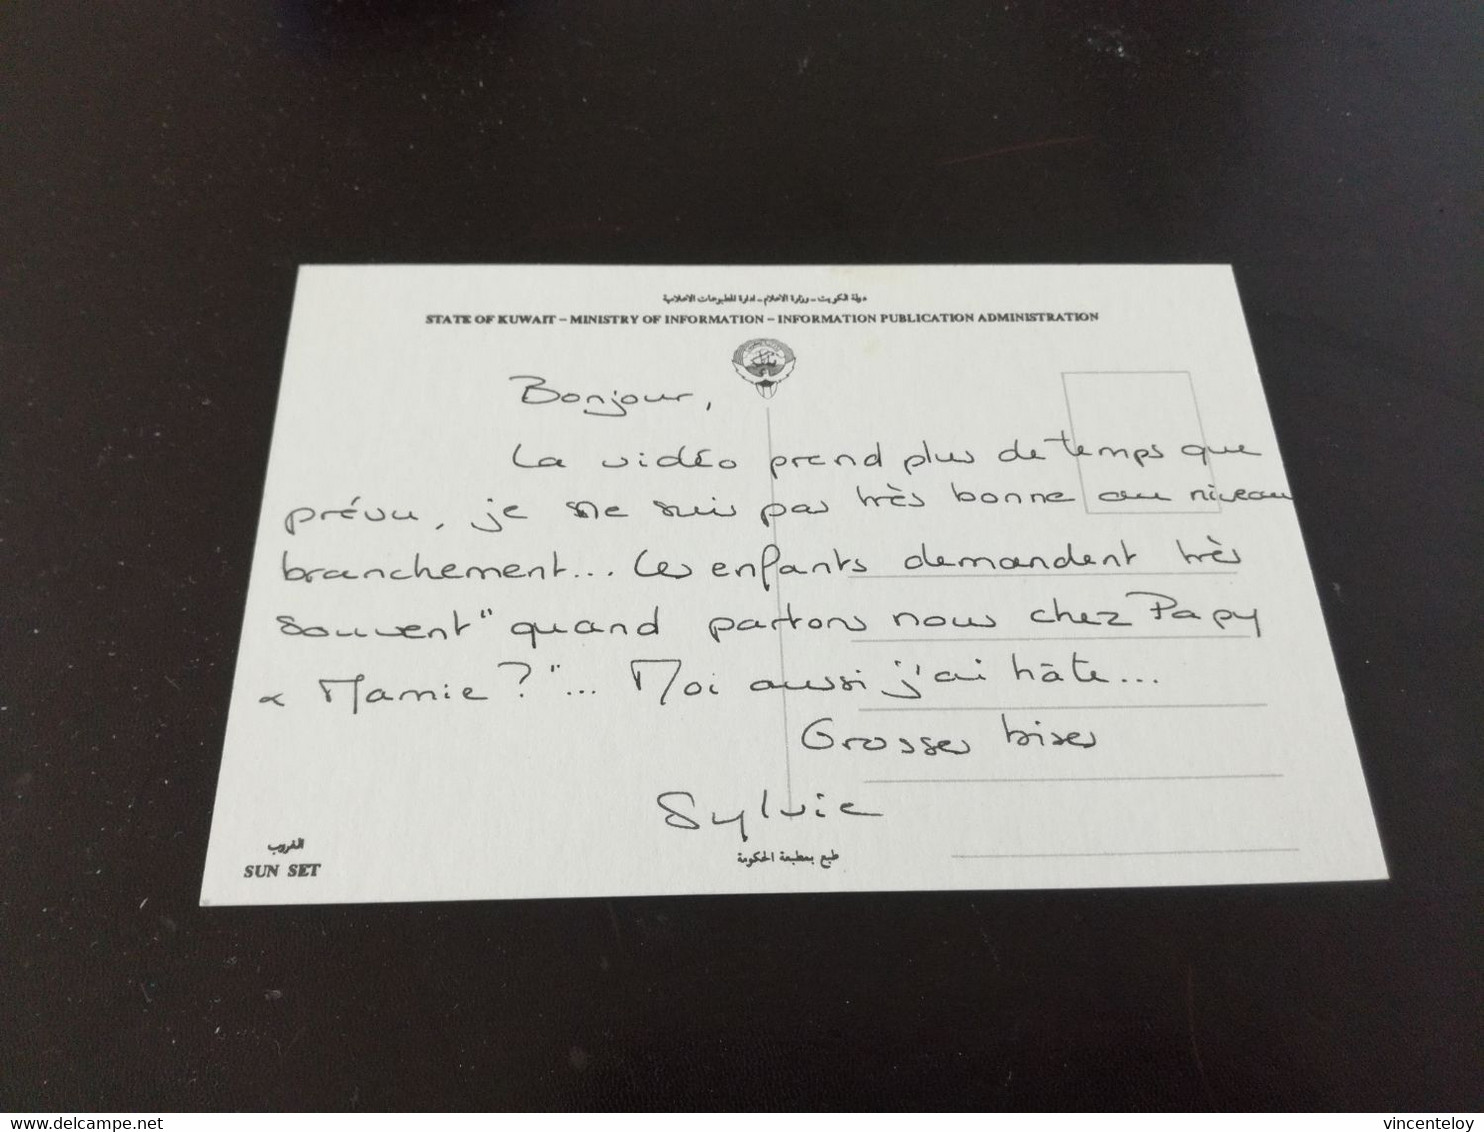 دولة الكويت - وزارة الاعلام - ادارة المطبوعات الاعلامية
STATE OF KUWAIT – MINISTRY OF INFORMATION – INFORMATION PUBLICATION ADMINISTRATION
Bonjour,
La vidéo prend plus de temps que
prévu, je ne suis pas très bonne au niveau
branchement... Les enfants demandent très
souvent "quand partons nous chez Papy
& Mamie ?"... Moi aussi j'ai hâte...
Grosses bises
Sylvie
طبع بمطبعة الحكومة
الغروب
SUN SET
delcampe.net
vincenteloy